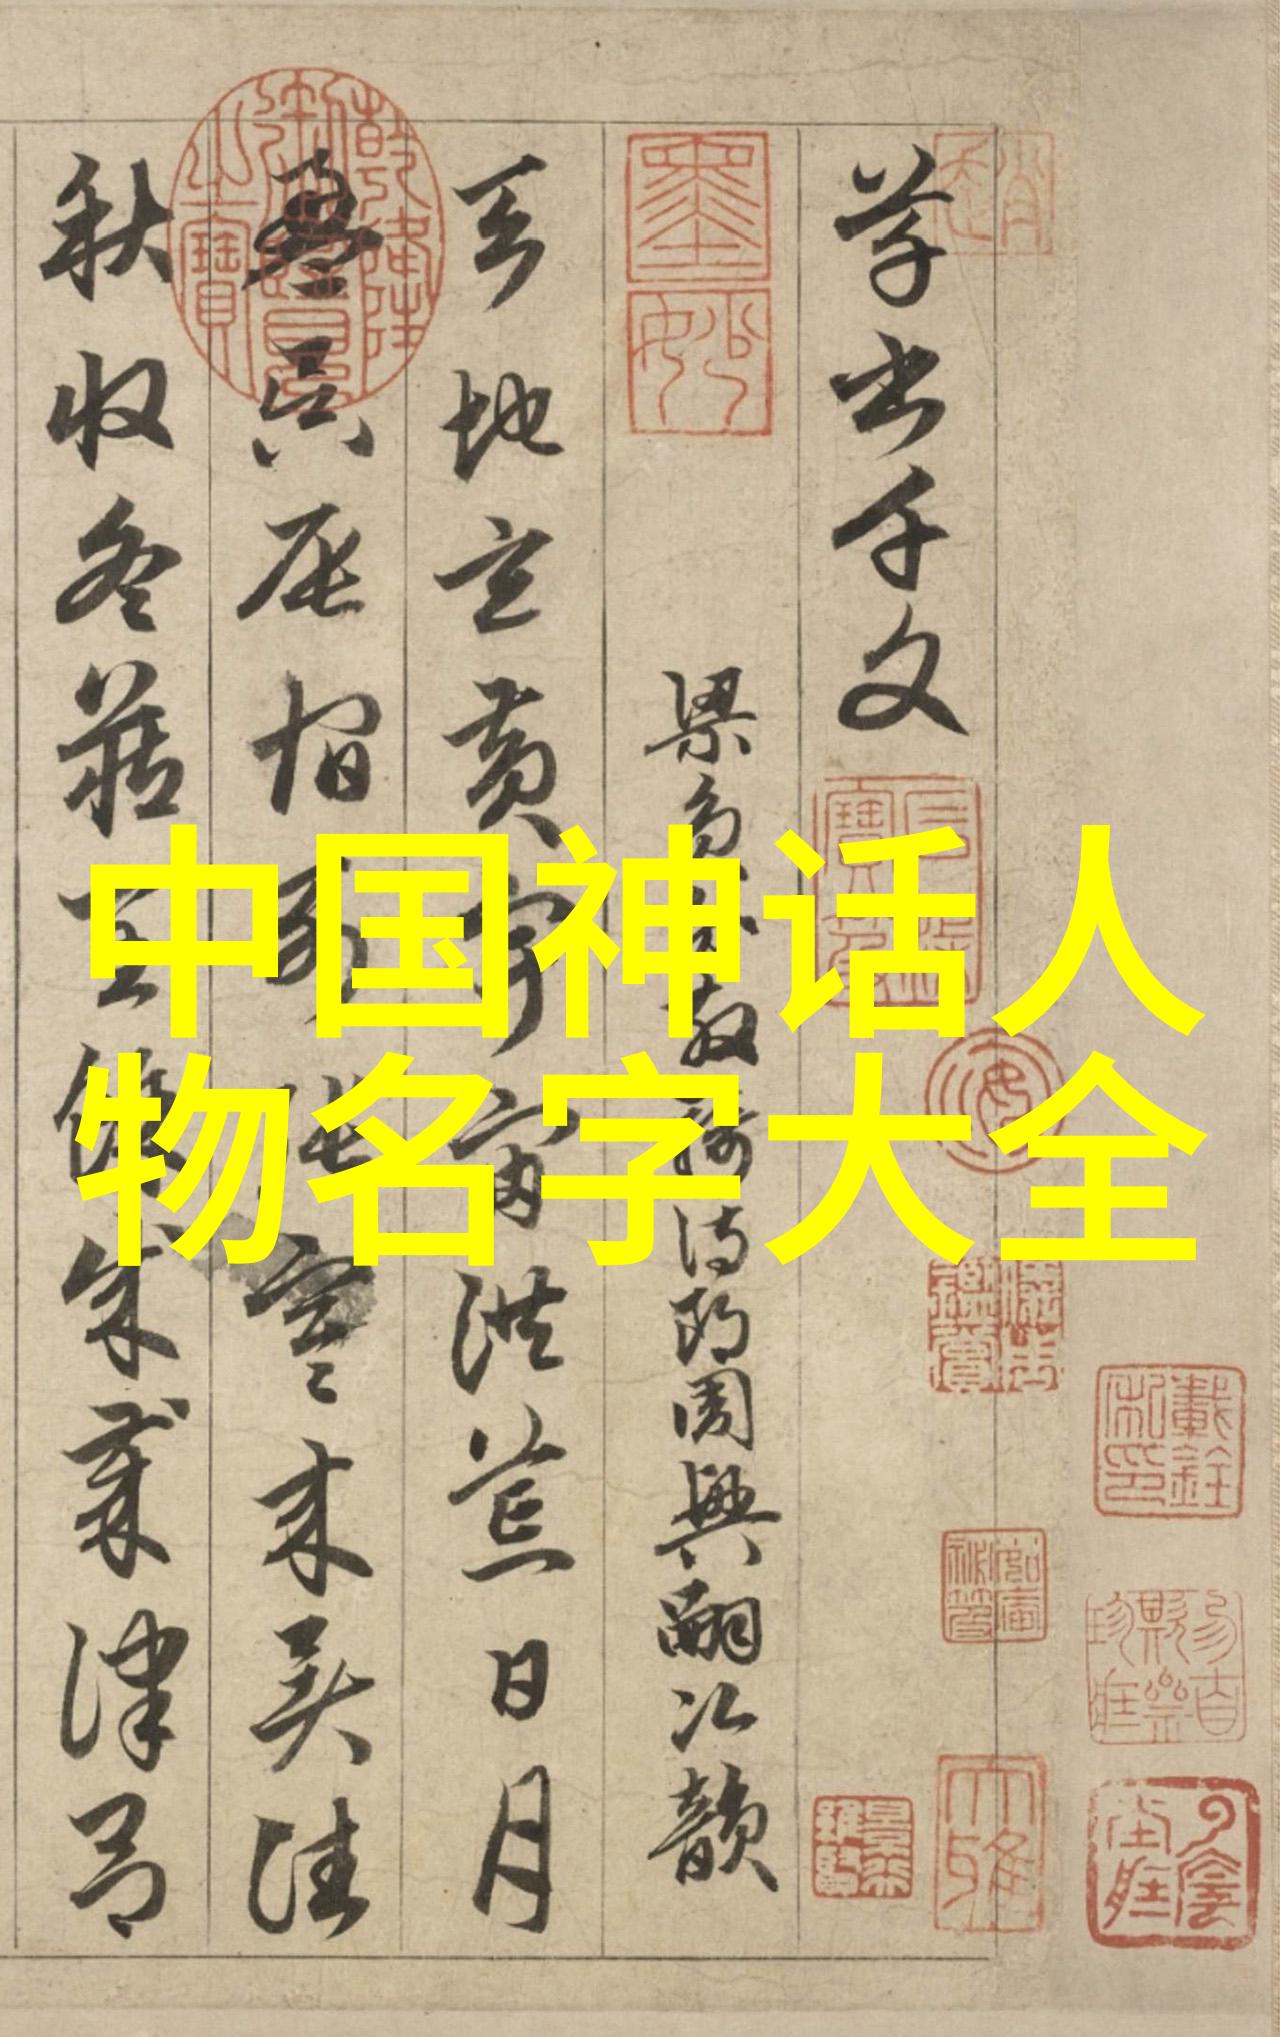 中国神话人
物名字大全
草书千文
梁員外散騎侍郎周興嗣次韻
天地玄黄宇宙洪荒日月
盈昃辰宿列張寒来暑往
秋收冬藏閏餘成歲律吕
墨妙
大雅